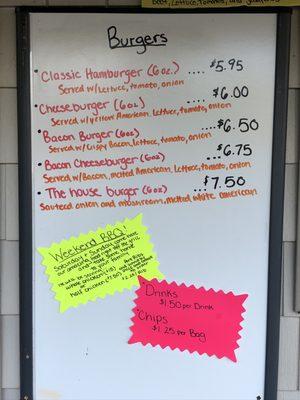 Beef, Lettuce, Tomatoes, and
Burgers
• Classic Hamburger (6oz.) .... $5.95
Served w/Lettuce, tomato, onion
• Cheeseburger (6oz) .... $6.00
Served w/yellow American, Lettuce, tomato, onion
• Bacon Burger (6oz) .... $6.50
Served w/Crispy Bacon, lettuce, tomato, onion
• Bacon Cheeseburger (6oz) .... $6.75
Served w/Bacon, melted American, Lettuce, tomato, onion
• The house burger (6oz) .... $7.50
Sauteed onion and mushroom, melted white american
Weekend BBQ!
Saturday & Sunday
and take home
to your families
We will be
Whole chicken
Half chicken
Drinks
$1.50 per Drink
Chips
$1.25 per Bag